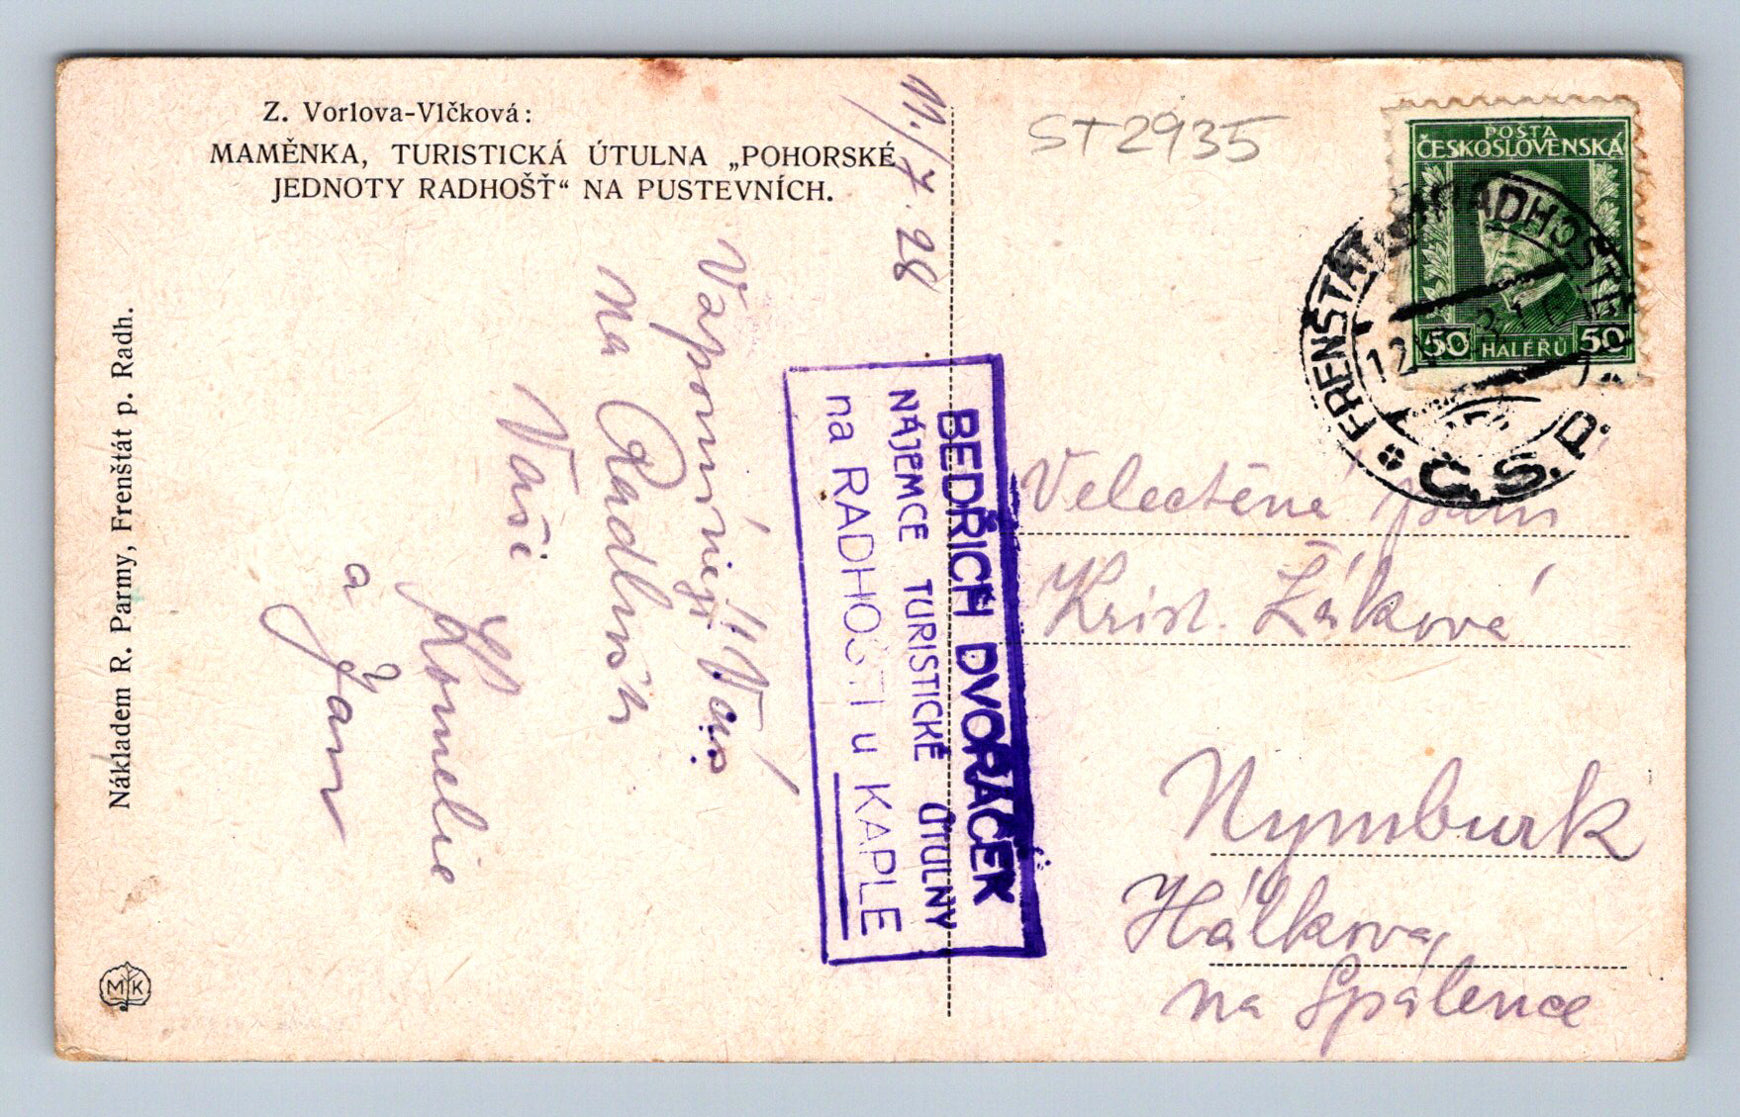 Z. Vorlova-Vlčková:
MAMĚNKA, TURISTICKÁ ÚTULNA „POHORSKÉ
JEDNOTY RADHOŠŤ“ NA PUSTEVNÍCH.
Nákladem R. Parmy, Frenštát p. Radh.
MK
11./7. 28
Vás
na Radhošti
Vaši
Kornelie
a Jan
BEDŘICH DVOŘÁČEK
NÁJEMCE TURISTICKÉ ÚTULNY
na RADHOŠTI u KAPLE
ST2935
POŠTA
ČESKOSLOVENSKÁ
50 HALÉŘŮ 50
FRENŠTÁT POD RADHOŠTĚM
Č.S.P.
Velectěná paní
Krist. Žáková
Nymburk
Hálkova,
na Spálence